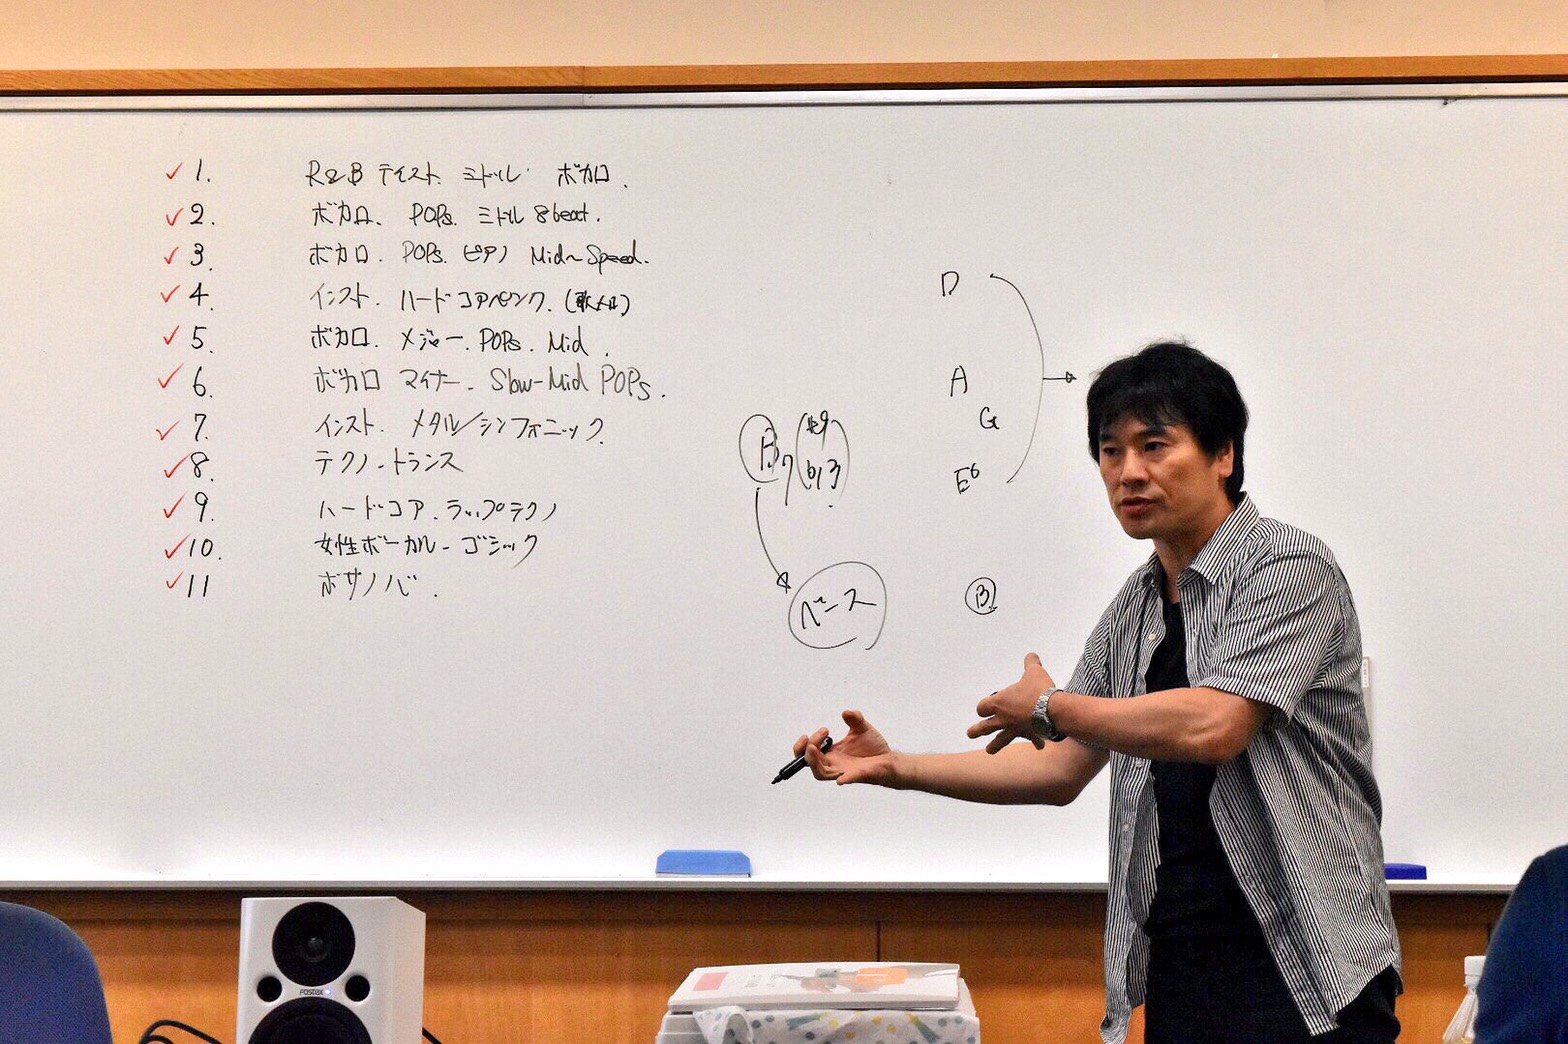 ✓ 1. R&B テイスト ミドル ボカロ.
✓ 2. ボカロ. POPs. ミドル 8beat.
✓ 3. ボカロ. POPs. ピアノ Mid~Speed.
✓ 4. インスト. ハードコアパンク.
✓ 5. ボカロ. メジャー. POPs. Mid.
✓ 6. ボカロ マイナー. Slow-Mid POPs.
✓ 7. インスト. メタル/シンフォニック.
✓ 8. テクノ.トランス
✓ 9. ハードコア.ラップテクノ
✓ 10. 女性ボーカル-ゴシック
✓ 11 ボサノバ.
B7 (#9 b13)
ベース
D
A
G
E6
B
Fostex